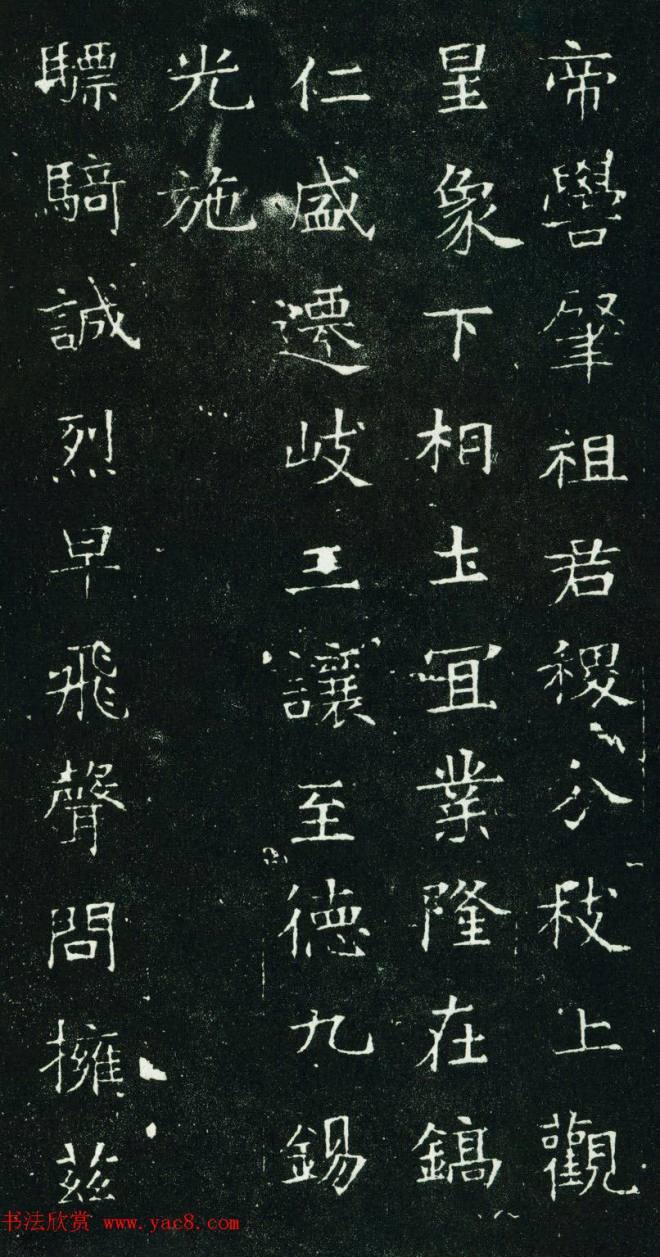 帝嚳肇祖若稷分秡上觀
星象下相土宜業隆在鎬
仁盛遷岐三讓至德九錫
光施
驃騎誠烈早飛聲問擁茲
书法欣赏 www.yac8.com